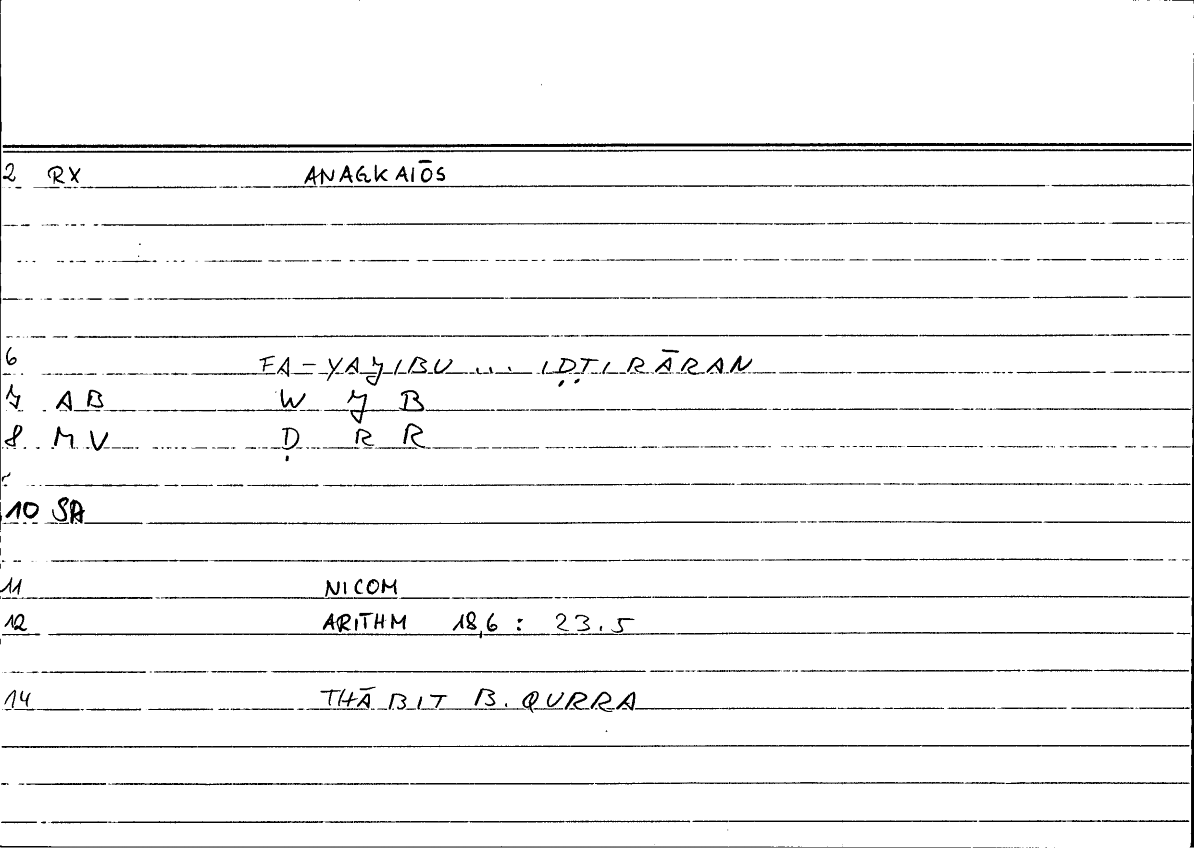 2 RX ANAGKAIŌS
6 FA-YAJIBU ... IḌṬIRĀRAN
7 AB W J B
8 MV Ḍ R R
10 SA
11 NICOM
12 ARITHM 18,6 : 23.5
14 THĀBIT B. QURRA